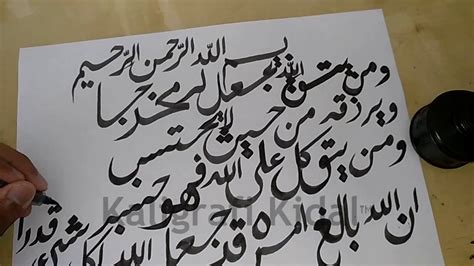 بسم الله الرحمن الرحيم
ومن يتق الله يجعل له مخرجا
ويرزقه من حيث لا يحتسب
ومن يتوكل على الله فهو حسبه
ان الله بالغ امره قد جعل الله لكل شيء قدرا
Kaligrafi Kidal™